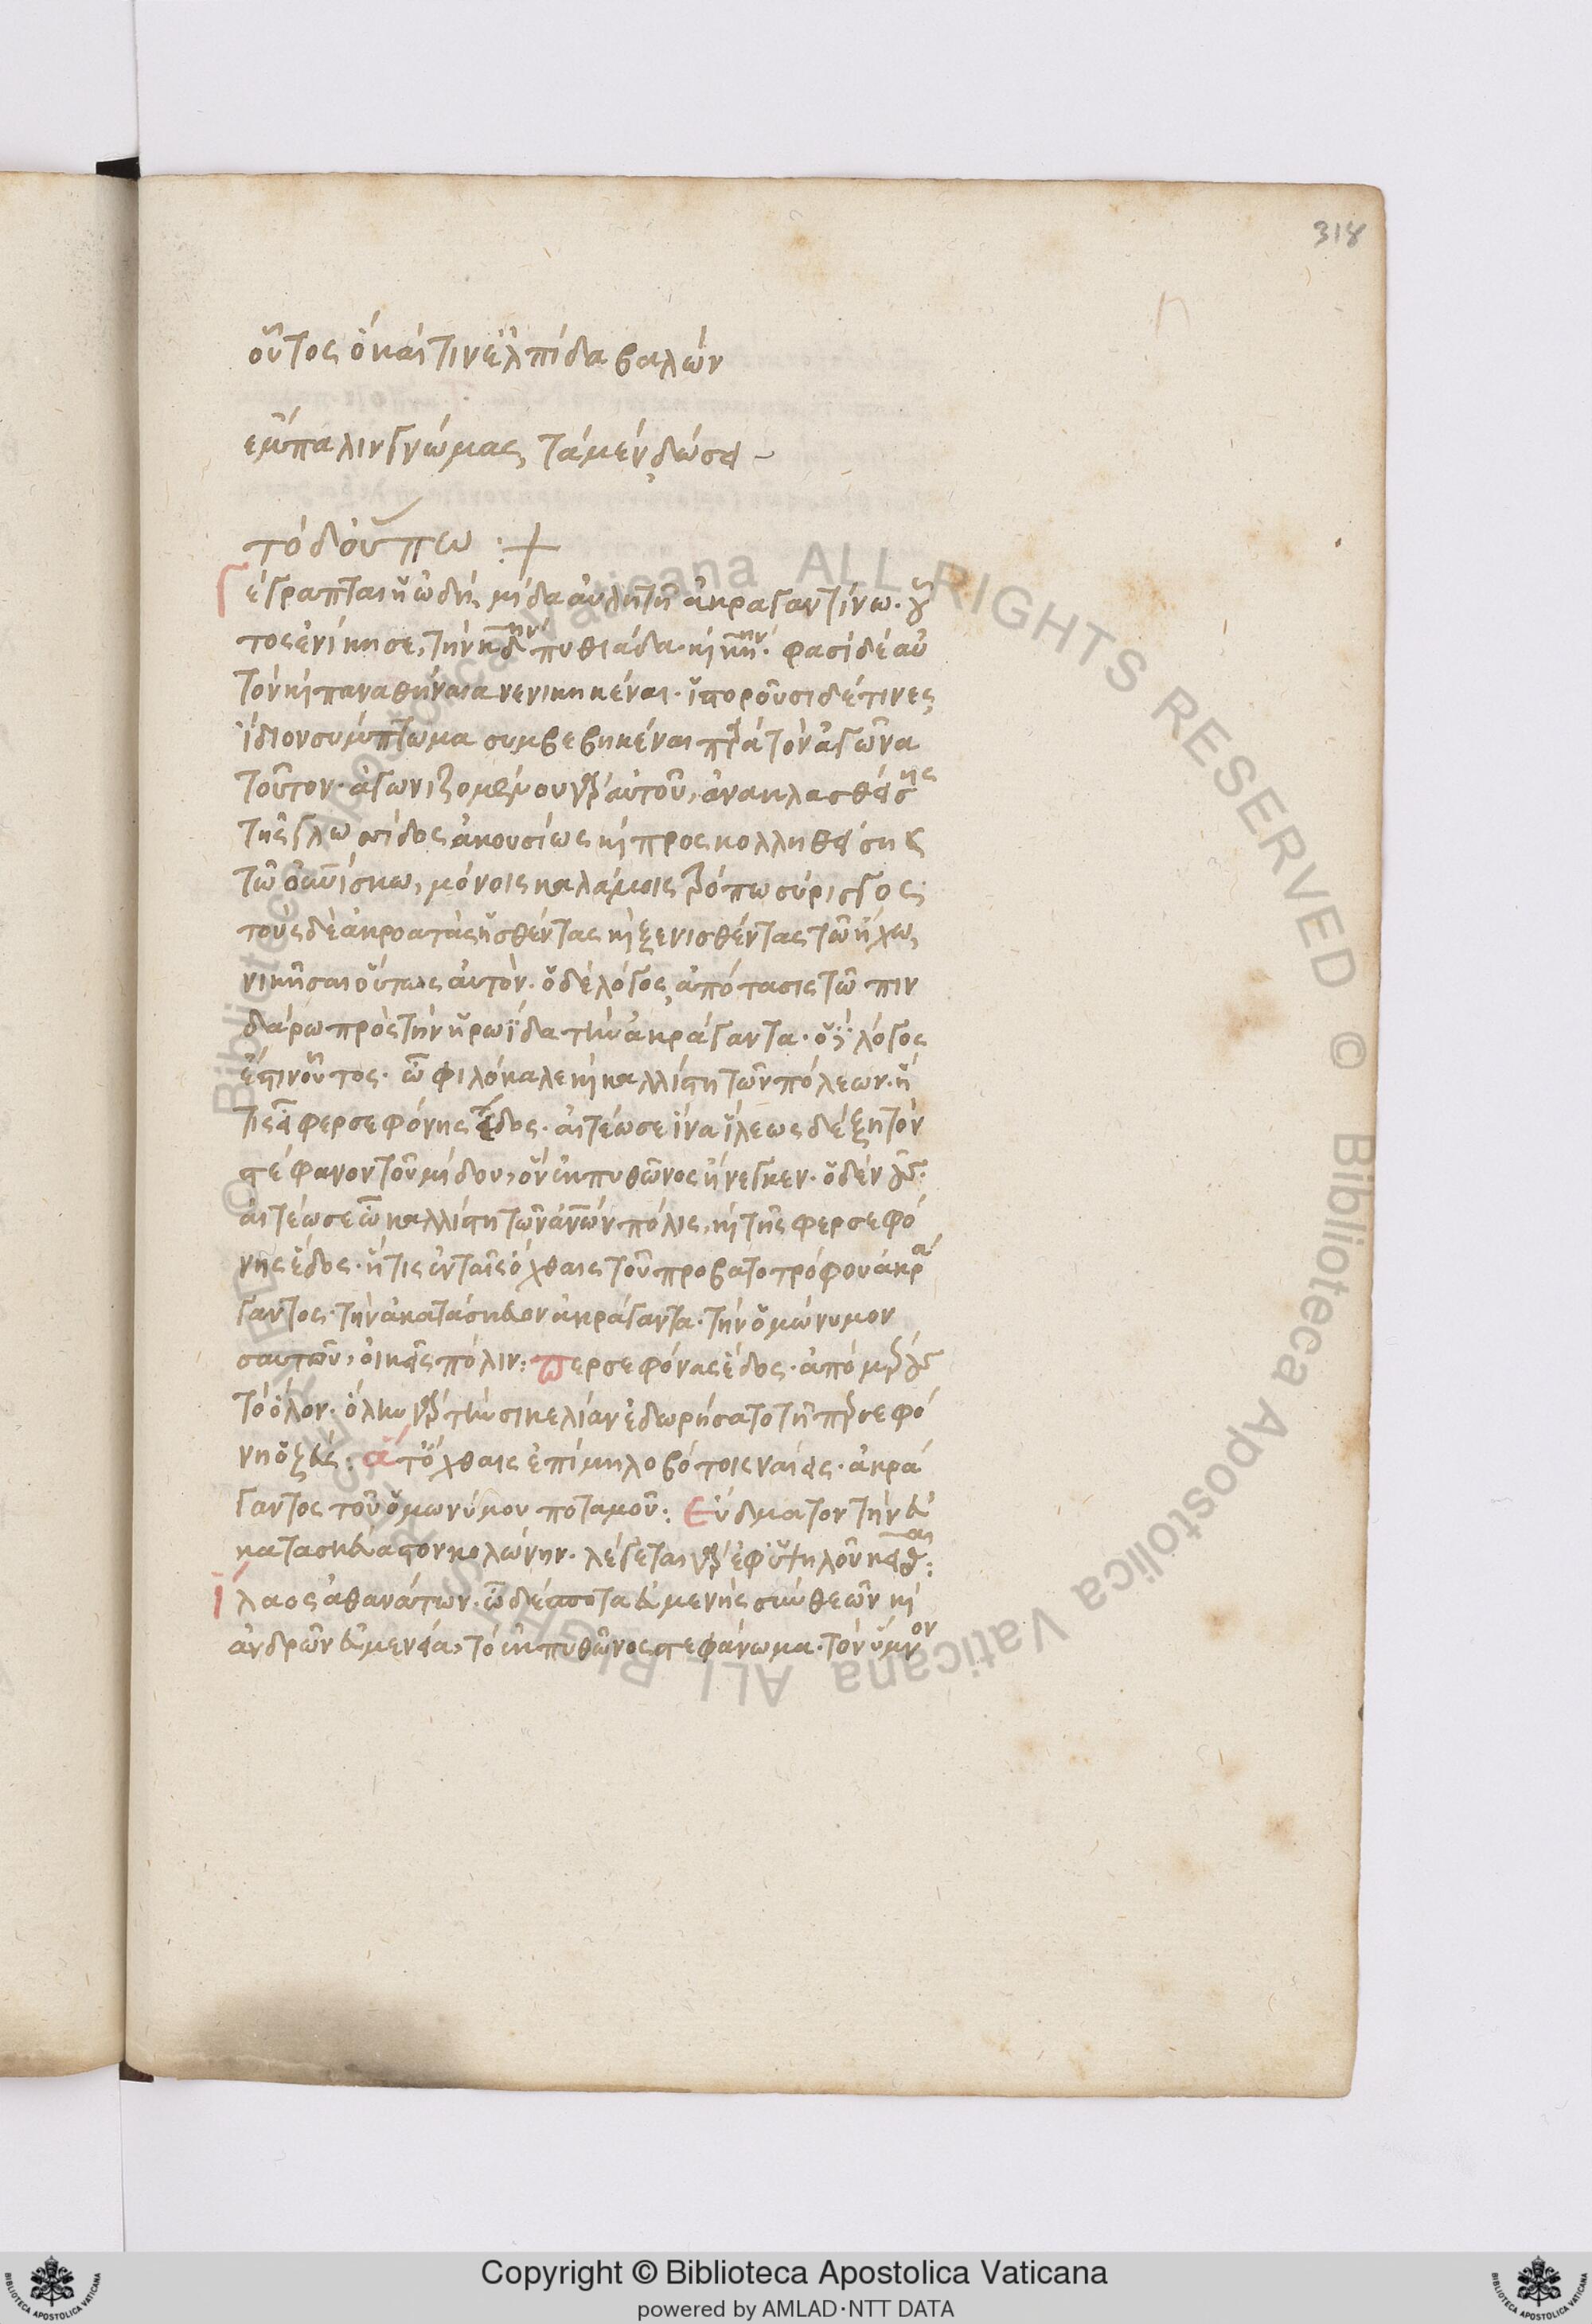 318
οὗτος ὃ καί τιν' ἐλπίδα βαλὼν
ἔμπαλιν γνώμας, τὰ μὲν δώσει
τὸ δ' οὔπω :+
Γέγραπται ἡ ᾠδὴ μίδα αὐλητῇ ἀκραγαντίνω. οὗ
τος ἐνίκησε, τὴν κδ ην πυθιάδα. καὶ κην. φασὶ δὲ αὐ
τὸν καὶ παναθήναια νενικηκέναι. ἱστοροῦσι δέ τινες
ἴδιον σύμπτωμα συμβεβηκέναι περὶ τὸν ἀγῶνα
τοῦτον. ἀγωνιζομένου γὰρ αὐτοῦ, ἀνακλασθείσης
τῆς γλωσσίδος ἀκουσίως καὶ προσκολληθείσης
τῷ οὐρανίσκω, μόνοις καλάμοις τρόπω σύριγγος
τοὺς δὲ ἀκροατὰς ἡσθέντας καὶ ξενισθέντας τῷ ἤχω,
νικῆσαι οὕτως αὐτόν. ὁ δὲ λόγος, ἀπότασις τῷ πιν
δάρω πρὸς τὴν ἡρωΐδα τὴν ἀκράγαντα. ὁ δὲ λόγος
ἐστὶν οὗτος. ὦ φιλόκαλε καὶ καλλίστη τῶν πόλεων. ἥ
τις εἶ φερσεφόνης ἕδος. αἰτέω σε ἵνα ἵλεως δέξῃ τὸν
στέφανον τοῦ μίδου, ὃν ἐκ πυθῶνος ἤνεγκεν.
αἰτέω σε ὦ καλλίστη τῶν ἀνῶν πόλις, καὶ τῆς φερσεφό
νης ἕδος. ἥτις ἐν ταῖς ὄχθαις τοῦ προβατοτρόφου ἀκρά
γαντος τὴν εὐκατάσκευον ἀκράγαντα. τὴν ὁμώνυμον
σαυτοῦ, οἰκεῖς πόλιν: Περσεφόνας ἕδος. ἀπὸ μέρους
τὸ ὅλον. ὅλην γὰρ τὴν σικελίαν ἐδωρήσατο τῇ περσεφό
νη ὁ ζεύς: ἅ τ' ὄχθαις ἐπὶ μηλοβότοις ναίεις. ἀκρά
γαντος τοῦ ὁμωνύμου ποταμοῦ: Εὔδματον τὴν εὐ
κατασκεύαστον κολώνην. λέγεται γὰρ ἐφ' ὑψηλοῦ κεῖσθαι:
Ἵλαος ἀθανάτων. ὦ δέσποτα εὐμενὴς σὺν θεῶν καὶ
ἀνδρῶν εὐμενεία, τὸ ἐκ πυθῶνος στεφάνωμα. τὸν ὕμνον
Copyright © Biblioteca Apostolica Vaticana
powered by AMLAD·NTT DATA
© Biblioteca Apostolica Vaticana ALL RIGHTS RESERVED
BIBLIOTECA APOSTOLICA VATICANA